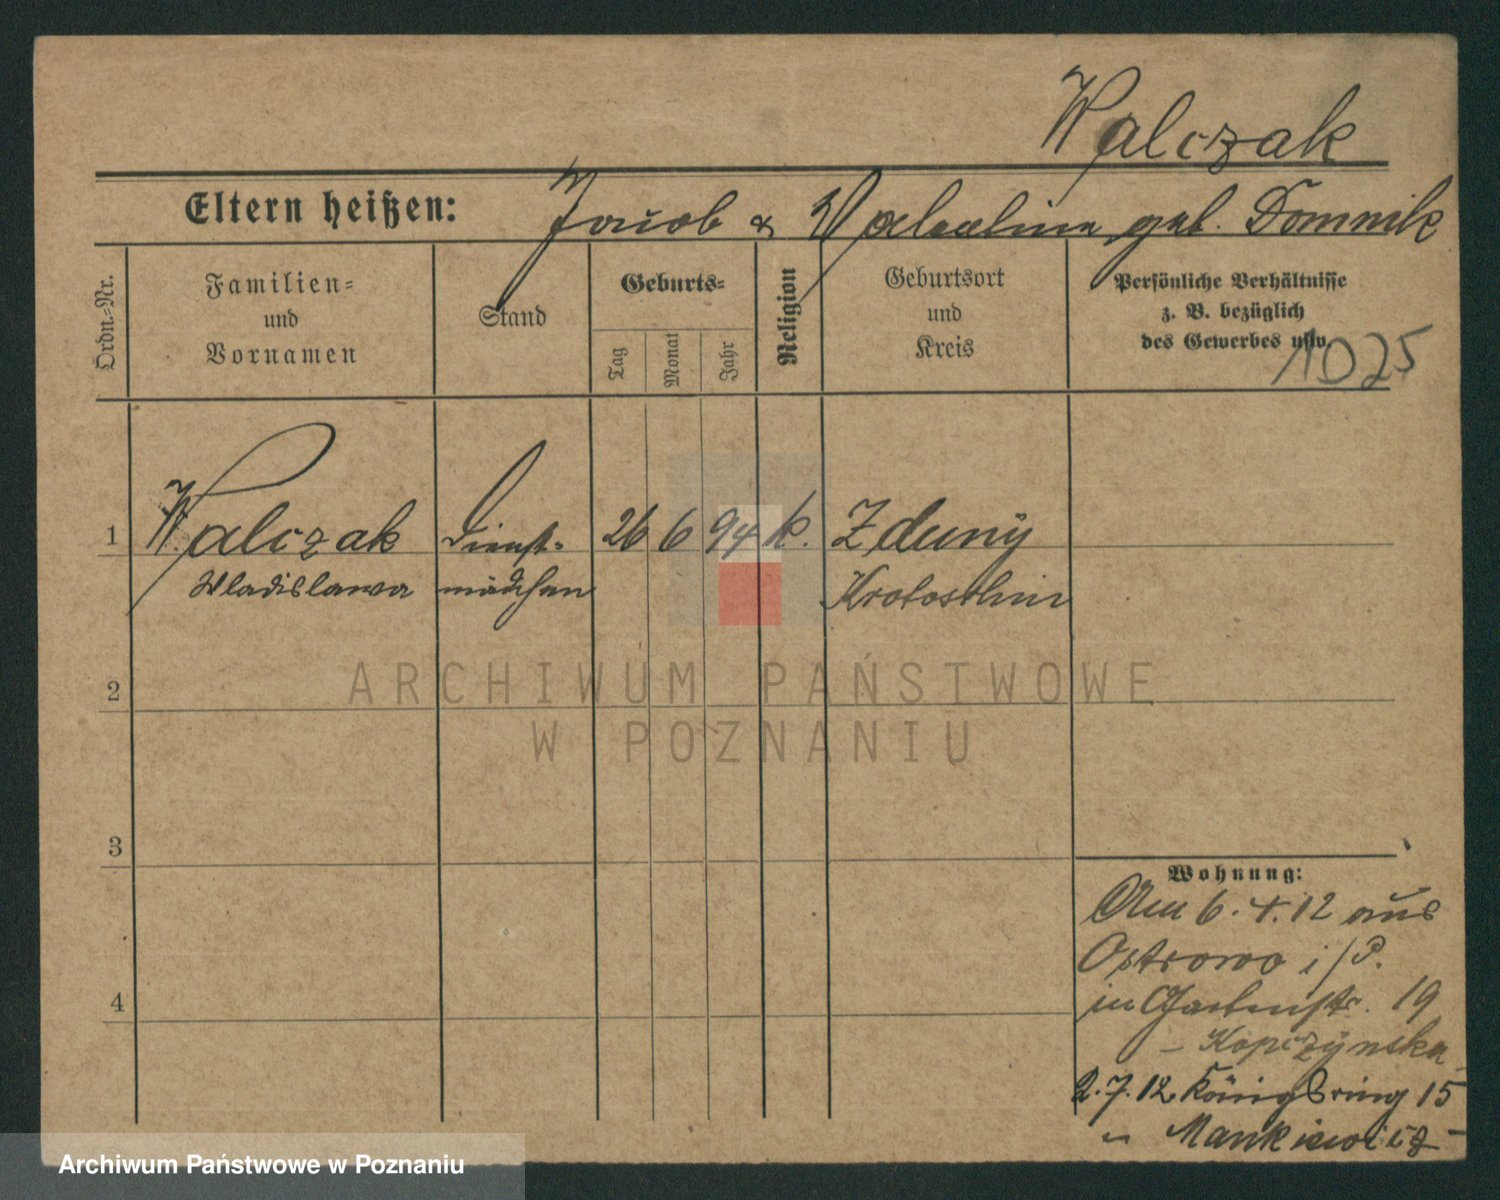 Walczak
Eltern heißen: Jacob & Valentina geb. Domnik
Ordn.=Nr.
Familien=
und
Vornamen
Stand
Geburts=
Tag
Monat
Jahr
Religion
Geburtsort
und
Kreis
Persönliche Verhältnisse
z. B. bezüglich
des Gewerbes usw.
1025
1 Walczak Dienst= 26 6 94 k. Zduny
Wladislawa mädchen Krotoschin
2
ARCHIWUM PAŃSTWOWE
W POZNANIU
3
Wohnung:
Am 6.4.12 aus
Ostrowo i/P.
4
in Gartenstr. 19
- Kopczynska
2.7.12 Königsring 15
Mankiewicz -
Archiwum Państwowe w Poznaniu